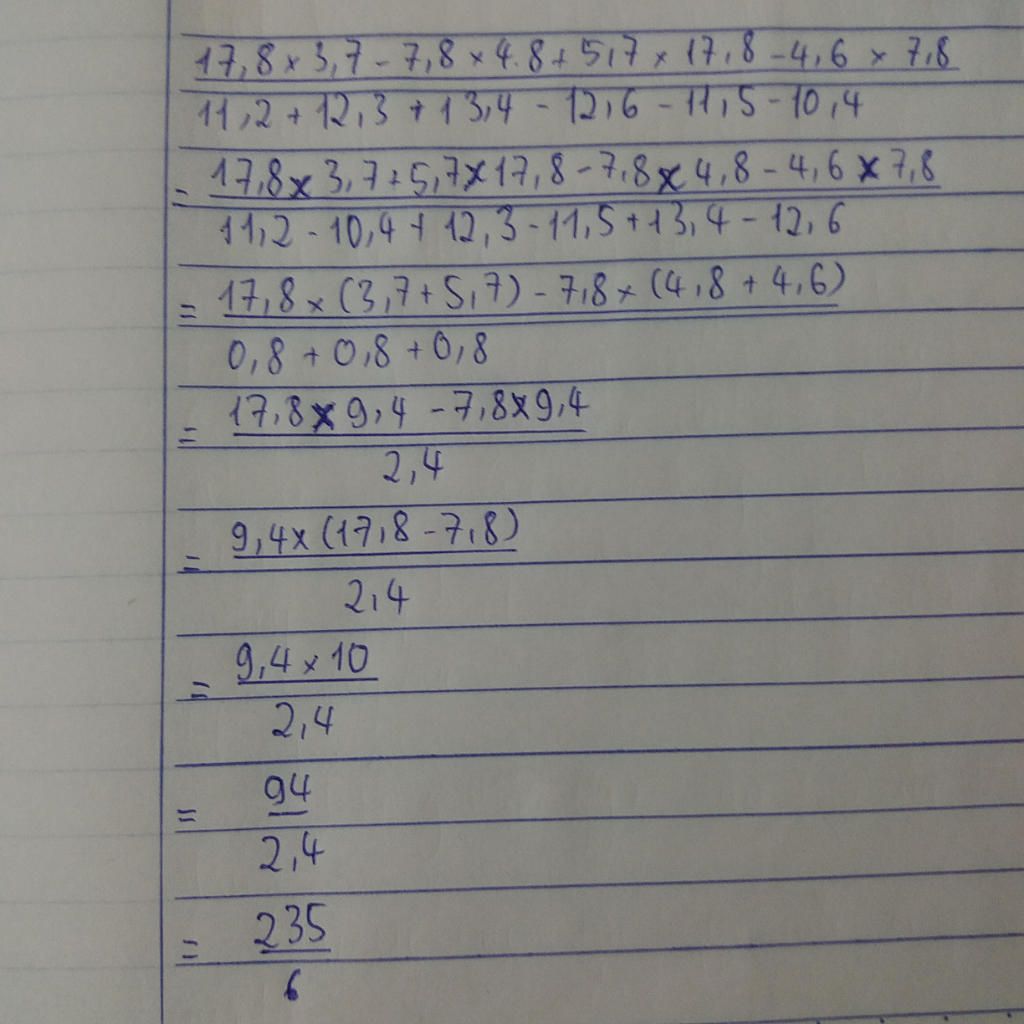 17,8 × 3,7 - 7,8 × 4.8 + 5,7 × 17,8 - 4,6 × 7,8
11,2 + 12,3 + 13,4 - 12,6 - 11,5 - 10,4
= 17,8 × 3,7 + 5,7 × 17,8 - 7,8 × 4,8 - 4,6 × 7,8
11,2 - 10,4 + 12,3 - 11,5 + 13,4 - 12,6
= 17,8 × (3,7 + 5,7) - 7,8 × (4,8 + 4,6)
0,8 + 0,8 + 0,8
= 17,8 × 9,4 - 7,8 × 9,4
2,4
= 9,4 × (17,8 - 7,8)
2,4
= 9,4 × 10
2,4
= 94
2,4
= 235
6